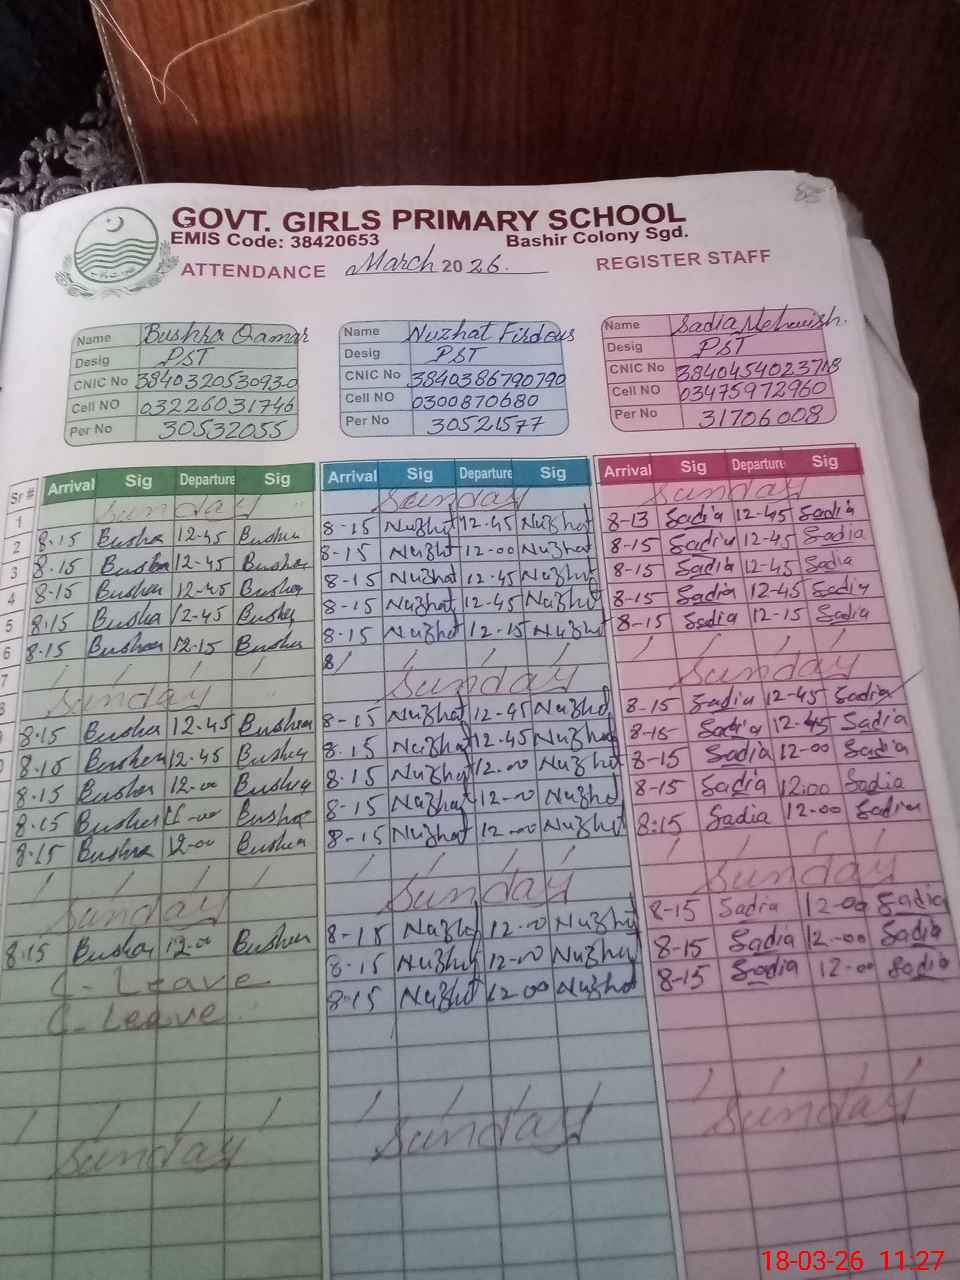 85
GOVT. GIRLS PRIMARY SCHOOL
EMIS Code: 38420653 Bashir Colony Sgd.
ATTENDANCE March 2026. REGISTER STAFF
Name Bushra Qamar Name Nuzhat Firdous Name Sadia Mehwish.
Desig PST Desig PST Desig PST
CNIC No 3840320530930 CNIC No 3840386790790 CNIC No
Cell NO 03226031746 Cell NO 0300870680 Cell NO 03475972960
Per No 30532055 Per No 30521577 Per No 31706008
Sr # Arrival Sig Departure Sig Arrival Sig Departure Sig Arrival Sig Departure Sig
1 Sunday Sunday Sunday
2 8-15 Bushra 12-45 Bushra 8-15 Nuzhat 12-45 Nuzhat 8-13 Sadia 12-45 Sadia
3 8-15 Bushra 12-45 Bushra 8-15 Nuzhat 12-00 Nuzhat 8-15 Sadia 12-45 Sadia
4 8-15 Bushra 12-45 Bushra 8-15 Nuzhat 12-45 Nuzhat 8-15 Sadia 12-45 Sadia
5 8-15 Bushra 12-45 Bushra 8-15 Nuzhat 12-45 Nuzhat 8-15 Sadia 12-45 Sadia
6 8-15 Bushra 12-15 Bushra 8-15 Nuzhat 12-15 Nuzhat 8-15 Sadia 12-15 Sadia
7 / / / / 8/ / / / / / / /
8 Sunday Sunday Sunday
8-15 Bushra 12-45 Bushra 8-15 Nuzhat 12-45 Nuzhat 8-15 Sadia 12-45 Sadia
8-15 Bushra 12-45 Bushra 8-15 Nuzhat 12-45 Nuzhat 8-15 Sadia 12-45 Sadia
8-15 Bushra 12-00 Bushra 8-15 Nuzhat 12-00 Nuzhat 8-15 Sadia 12-00 Sadia
8-15 Bushra Bushra 8-15 Nuzhat 12-00 Nuzhat 8-15 Sadia 12.00 Sadia
8-15 Bushra 12-00 Bushra 8-15 Nuzhat 12-00 Nuzhat 8:15 Sadia 12-00 Sadia
/ / / / / / / / / / / /
Sunday Sunday Sunday
8-15 Bushra 12-00 Bushra 8-15 Nuzhat 12-00 Nuzhat 8-15 Sadia 12-00 Sadia
C-Leave 8-15 Nuzhat 12-00 Nuzhat 8-15 Sadia 12-00 Sadia
C-Leave 8-15 Nuzhat 12-00 Nuzhat 8-15 Sadia 12-00 Sadia
/ / / / / / / / / / / /
Sunday Sunday Sunday
18-03-26 11:27